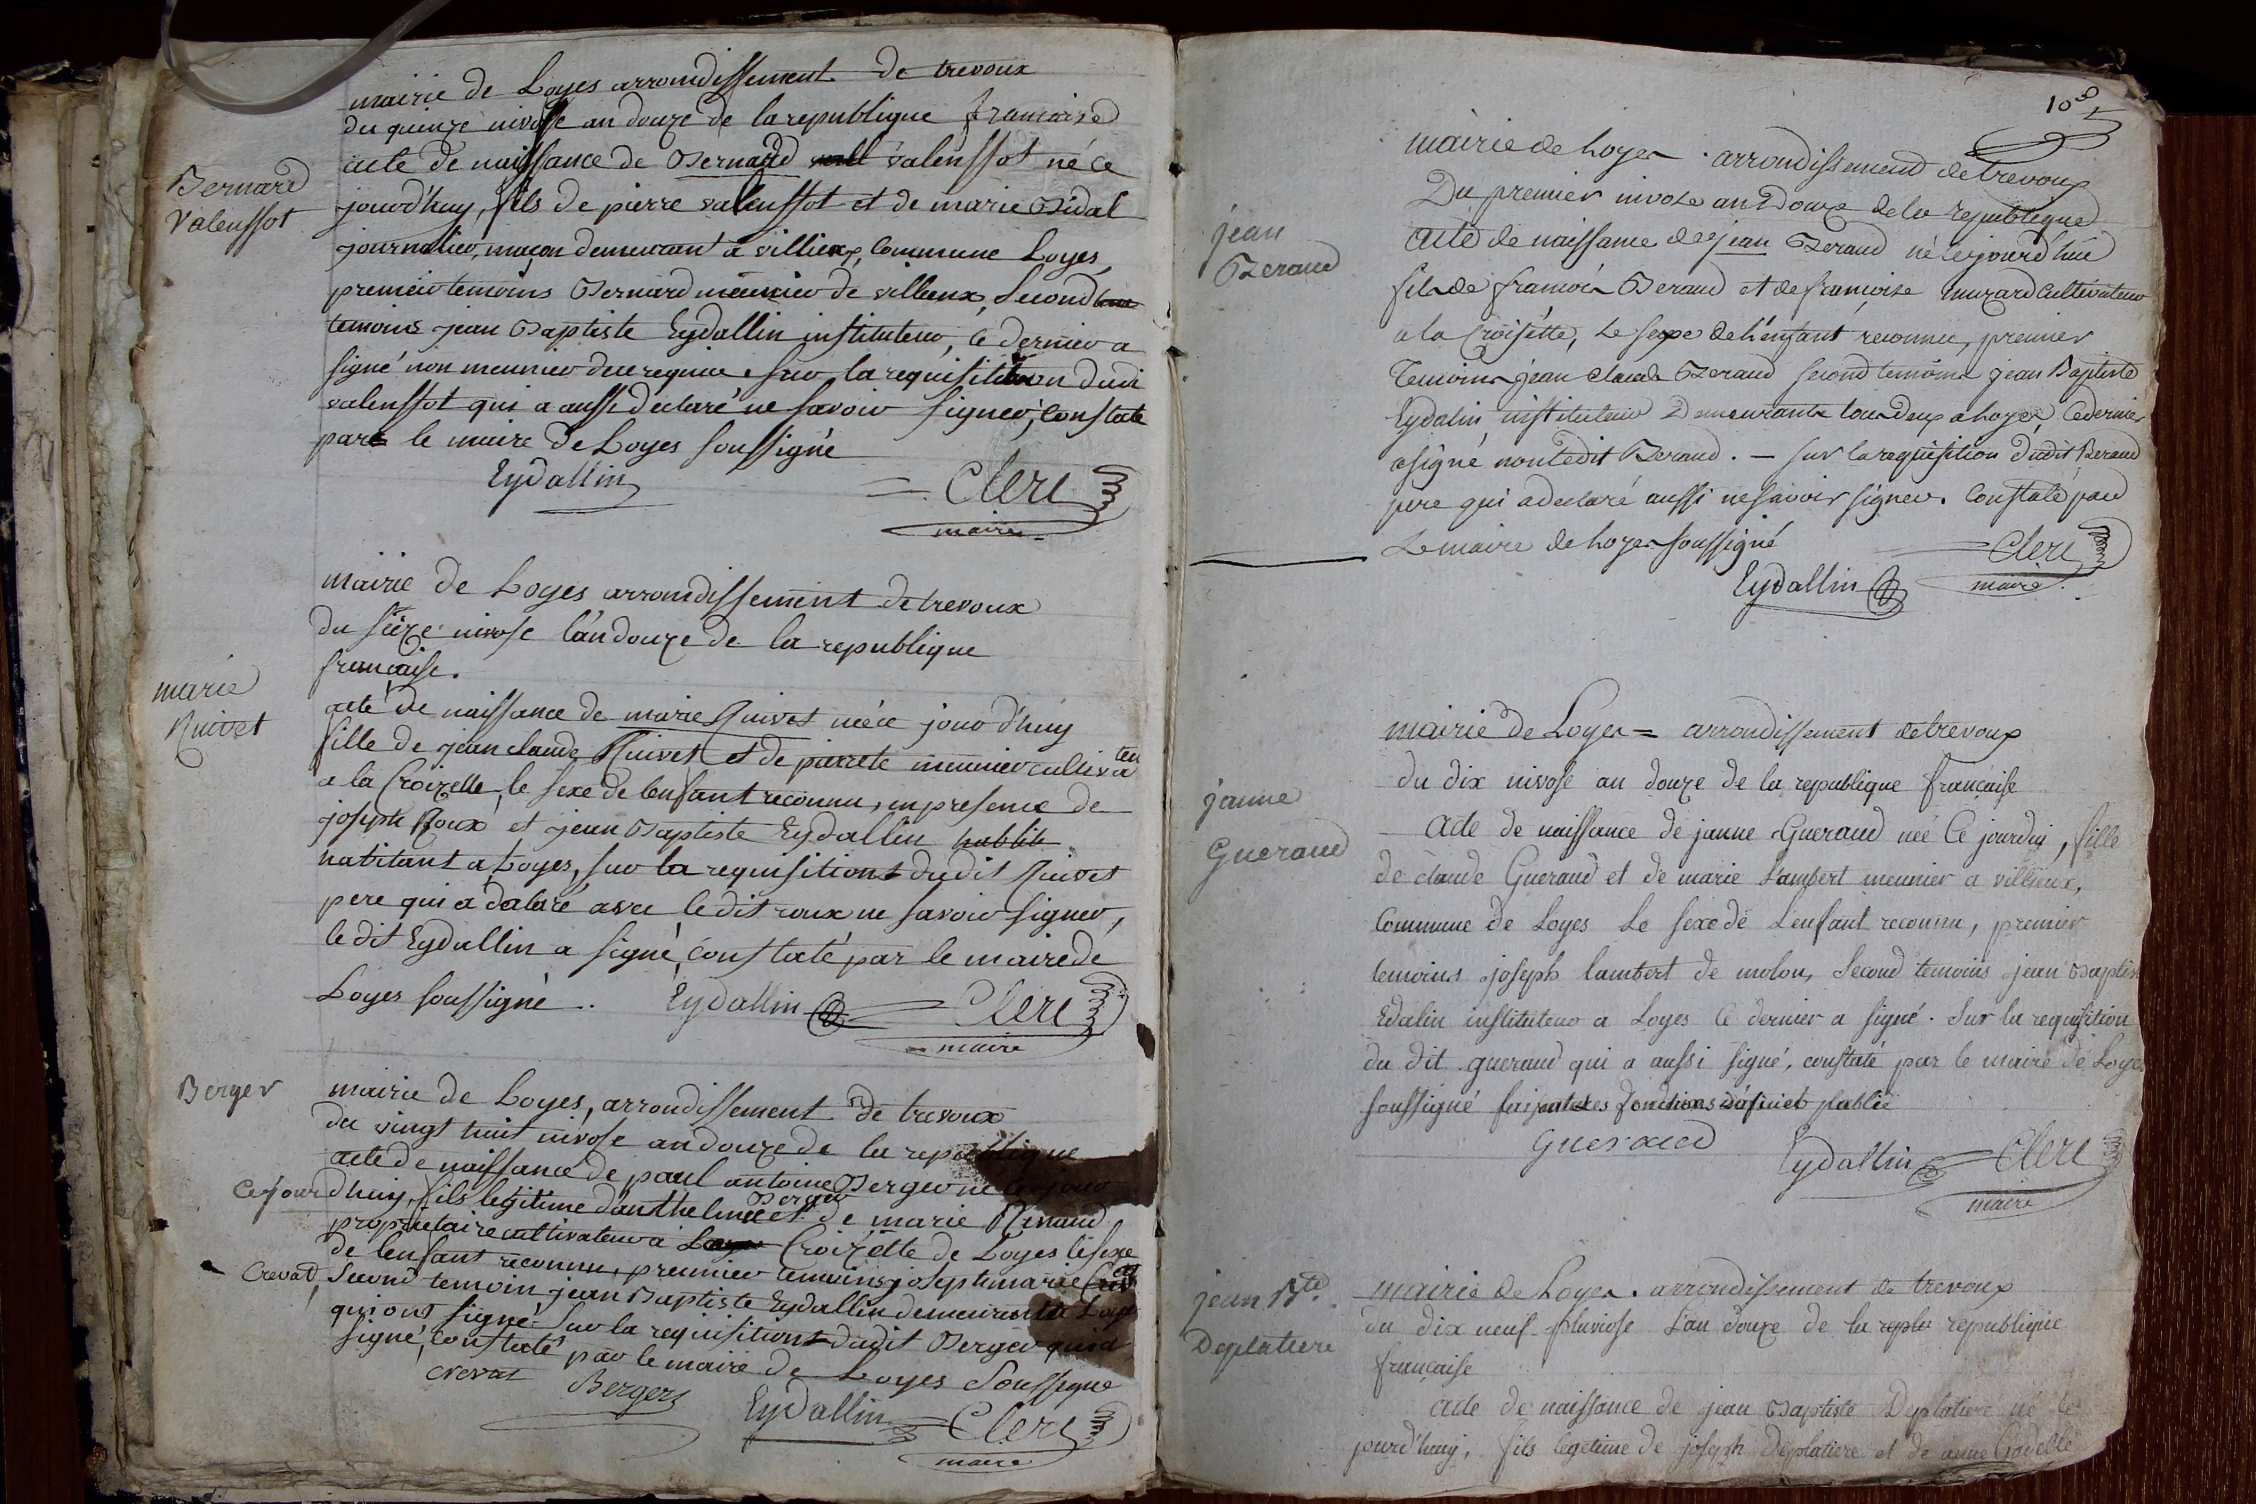 mairie de Loyes arrondissement de trevoux
du quinze nivose an douze de la republique francaise
Bernard
Valenssot
acte de naissance de Bernard valenssot né ce
jourd'huy, fils de pierre valenssot et de marie Bidal
journalier, maçon demeurant a villieux, Commune Loyes,
premier temoins Bernard meunier de villieux, Second
temoins jean Baptiste Eydallin instituteur, le dernier a
signé non meunier de ce requis. sur la requisition dudi
valenssot qui a aussi declaré ne savoir signer, constate
par le maire de Loyes soussigné
Eydallin
Clerc
maire
mairie de Loyes arrondissement de trevoux
du seize nivose l'an douze de la republique
francaise.
marie
Quivet
acte de naissance de marie Quivet née ce jour d'huy
fille de jean claude Quivet et de pierrete meunier cultivateu
a la Croizette, le sexe de lenfant reconnu, en presence de
joseph Roux et jean Baptiste Eydallin habbit
habitant a Loyes, sur la requisition dudit Quivet
pere qui a dalaré avec le dit roux ne savoir signer,
le dit Eydallin a signé, constaté par le maire de
Loyes soussigné. Eydallin Clerc
maire
Berger
mairie de Loyes, arrondissement de trevoux
du vingt huit nivose an douze de la republique
acte de naissance de paul antoine Berger né ce jour
Ce jourdhuy, fils legitime d'anthelme Berger et de marie Renaud
proprietaire cultivateur a Loye Croizette de Loyes le sexe
de lenfant reconnu, premier temoins joseph marie
Crevat, Second temoin jean Baptiste Eydallin demeurant a Loyes
qui ont signé. Sur la requisition dudit Berger qui a
signé, constaté par le maire de Loyes Soussigné
crevat Bergers
Eydallin Clerc
maire
108
mairie de Loyes. arrondissement de trevoux
Du premier nivose an douze de la republique
jean
Beraud
acte de naissance de jean Beraud né cejourd'hui
fils de francois Beraud et de francoise muzard cultivateur
a la Croisette, le sexe de l'enfant reconnu, premier
Temoins jean claude Beraud second temoins jean Baptiste
Eydalin instituteur Demeurants tous deux a loyes, Ce dernier
a signé non ledit Beraud. — sur la requisition dudit Beraud
pere qui a declaré aussi ne savoir signer. Constaté par
Le maire de Loyes soussigné
Clerc
Eydallin maire
mairie de Loyes = arrondissement de trevoux
du dix nivose an douze de la republique francaise
janne
Gueraud
Acte de naissance de janne Gueraud née ce jourduy, fille
de claude Gueraud et de marie Lambert meunier a villieux,
Commune de Loyes Le sexe de L'enfant reconnu, premier
temoins joseph lambert de molon, Second temoins jean Baptis
Edalin instituteur a Loyes Ce dernier a signé. Sur la requisition
du dit gueraud qui a aussi signé, constaté par le maire de Loyes
soussigné faisant les fonctions d'officier public
Gueraud
Eydallin Clerc
maire
jean Bte
Deplatiere
mairie de Loyes. arrondissement de trevoux
du dix neuf pluviose L'an douze de la repla republique
française
Acte de naissance de jean Baptiste Deplatiere né ce
jourd'huy, fils legitime de joseph Deplatiere et de anne